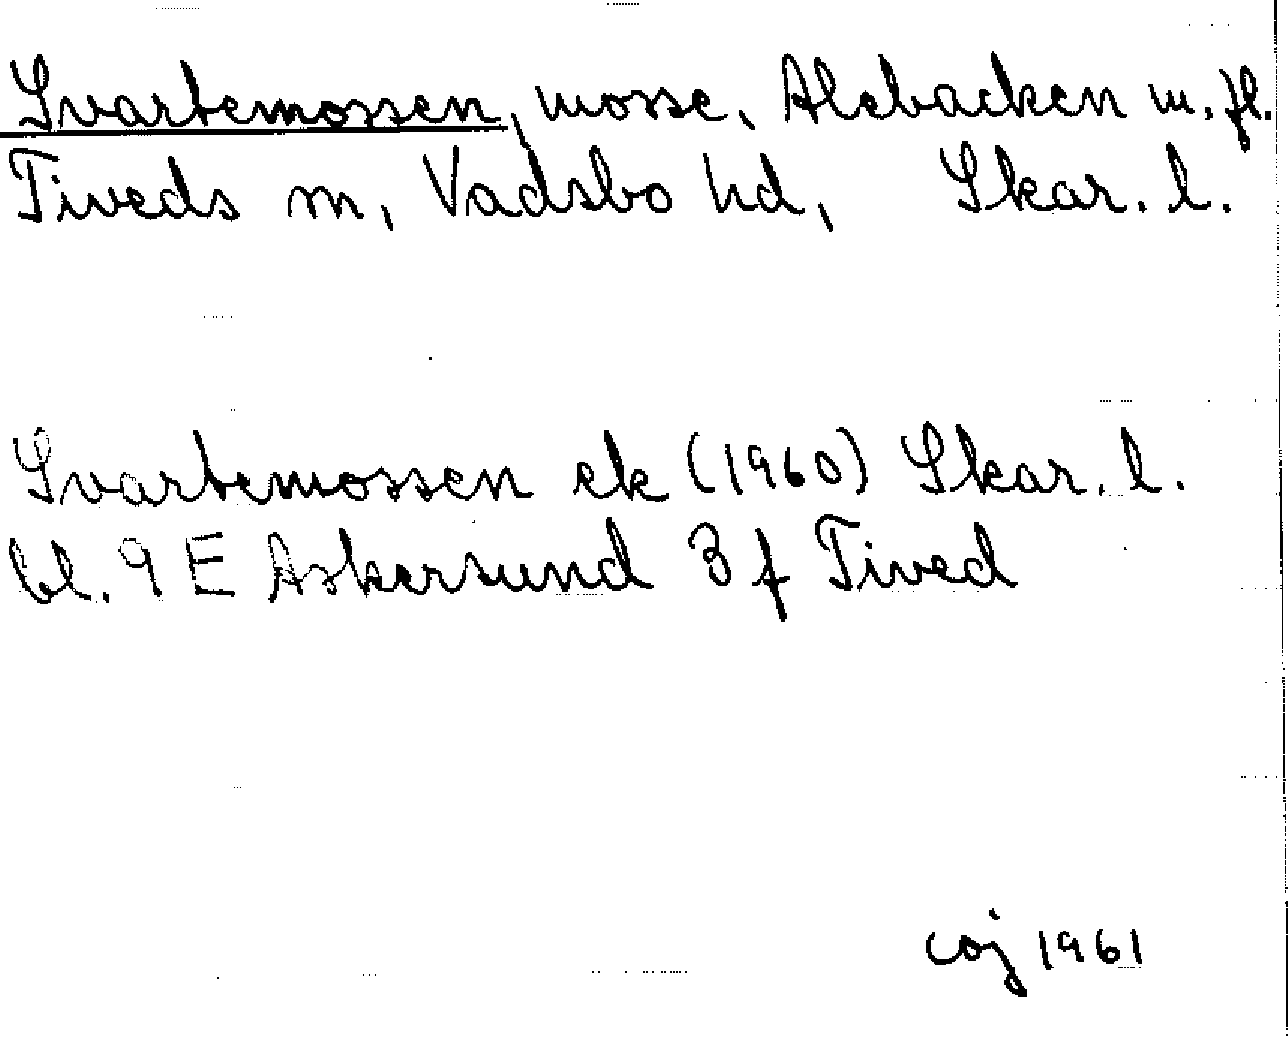 Svartemossen, mosse, Alebacken m. fl.
Tiveds sn, Vadsbo hd, Skar. l.
Svartemossen ek (1960) Skar. l.
bl. 9 E Askersund 3 f Tived
coj 1961